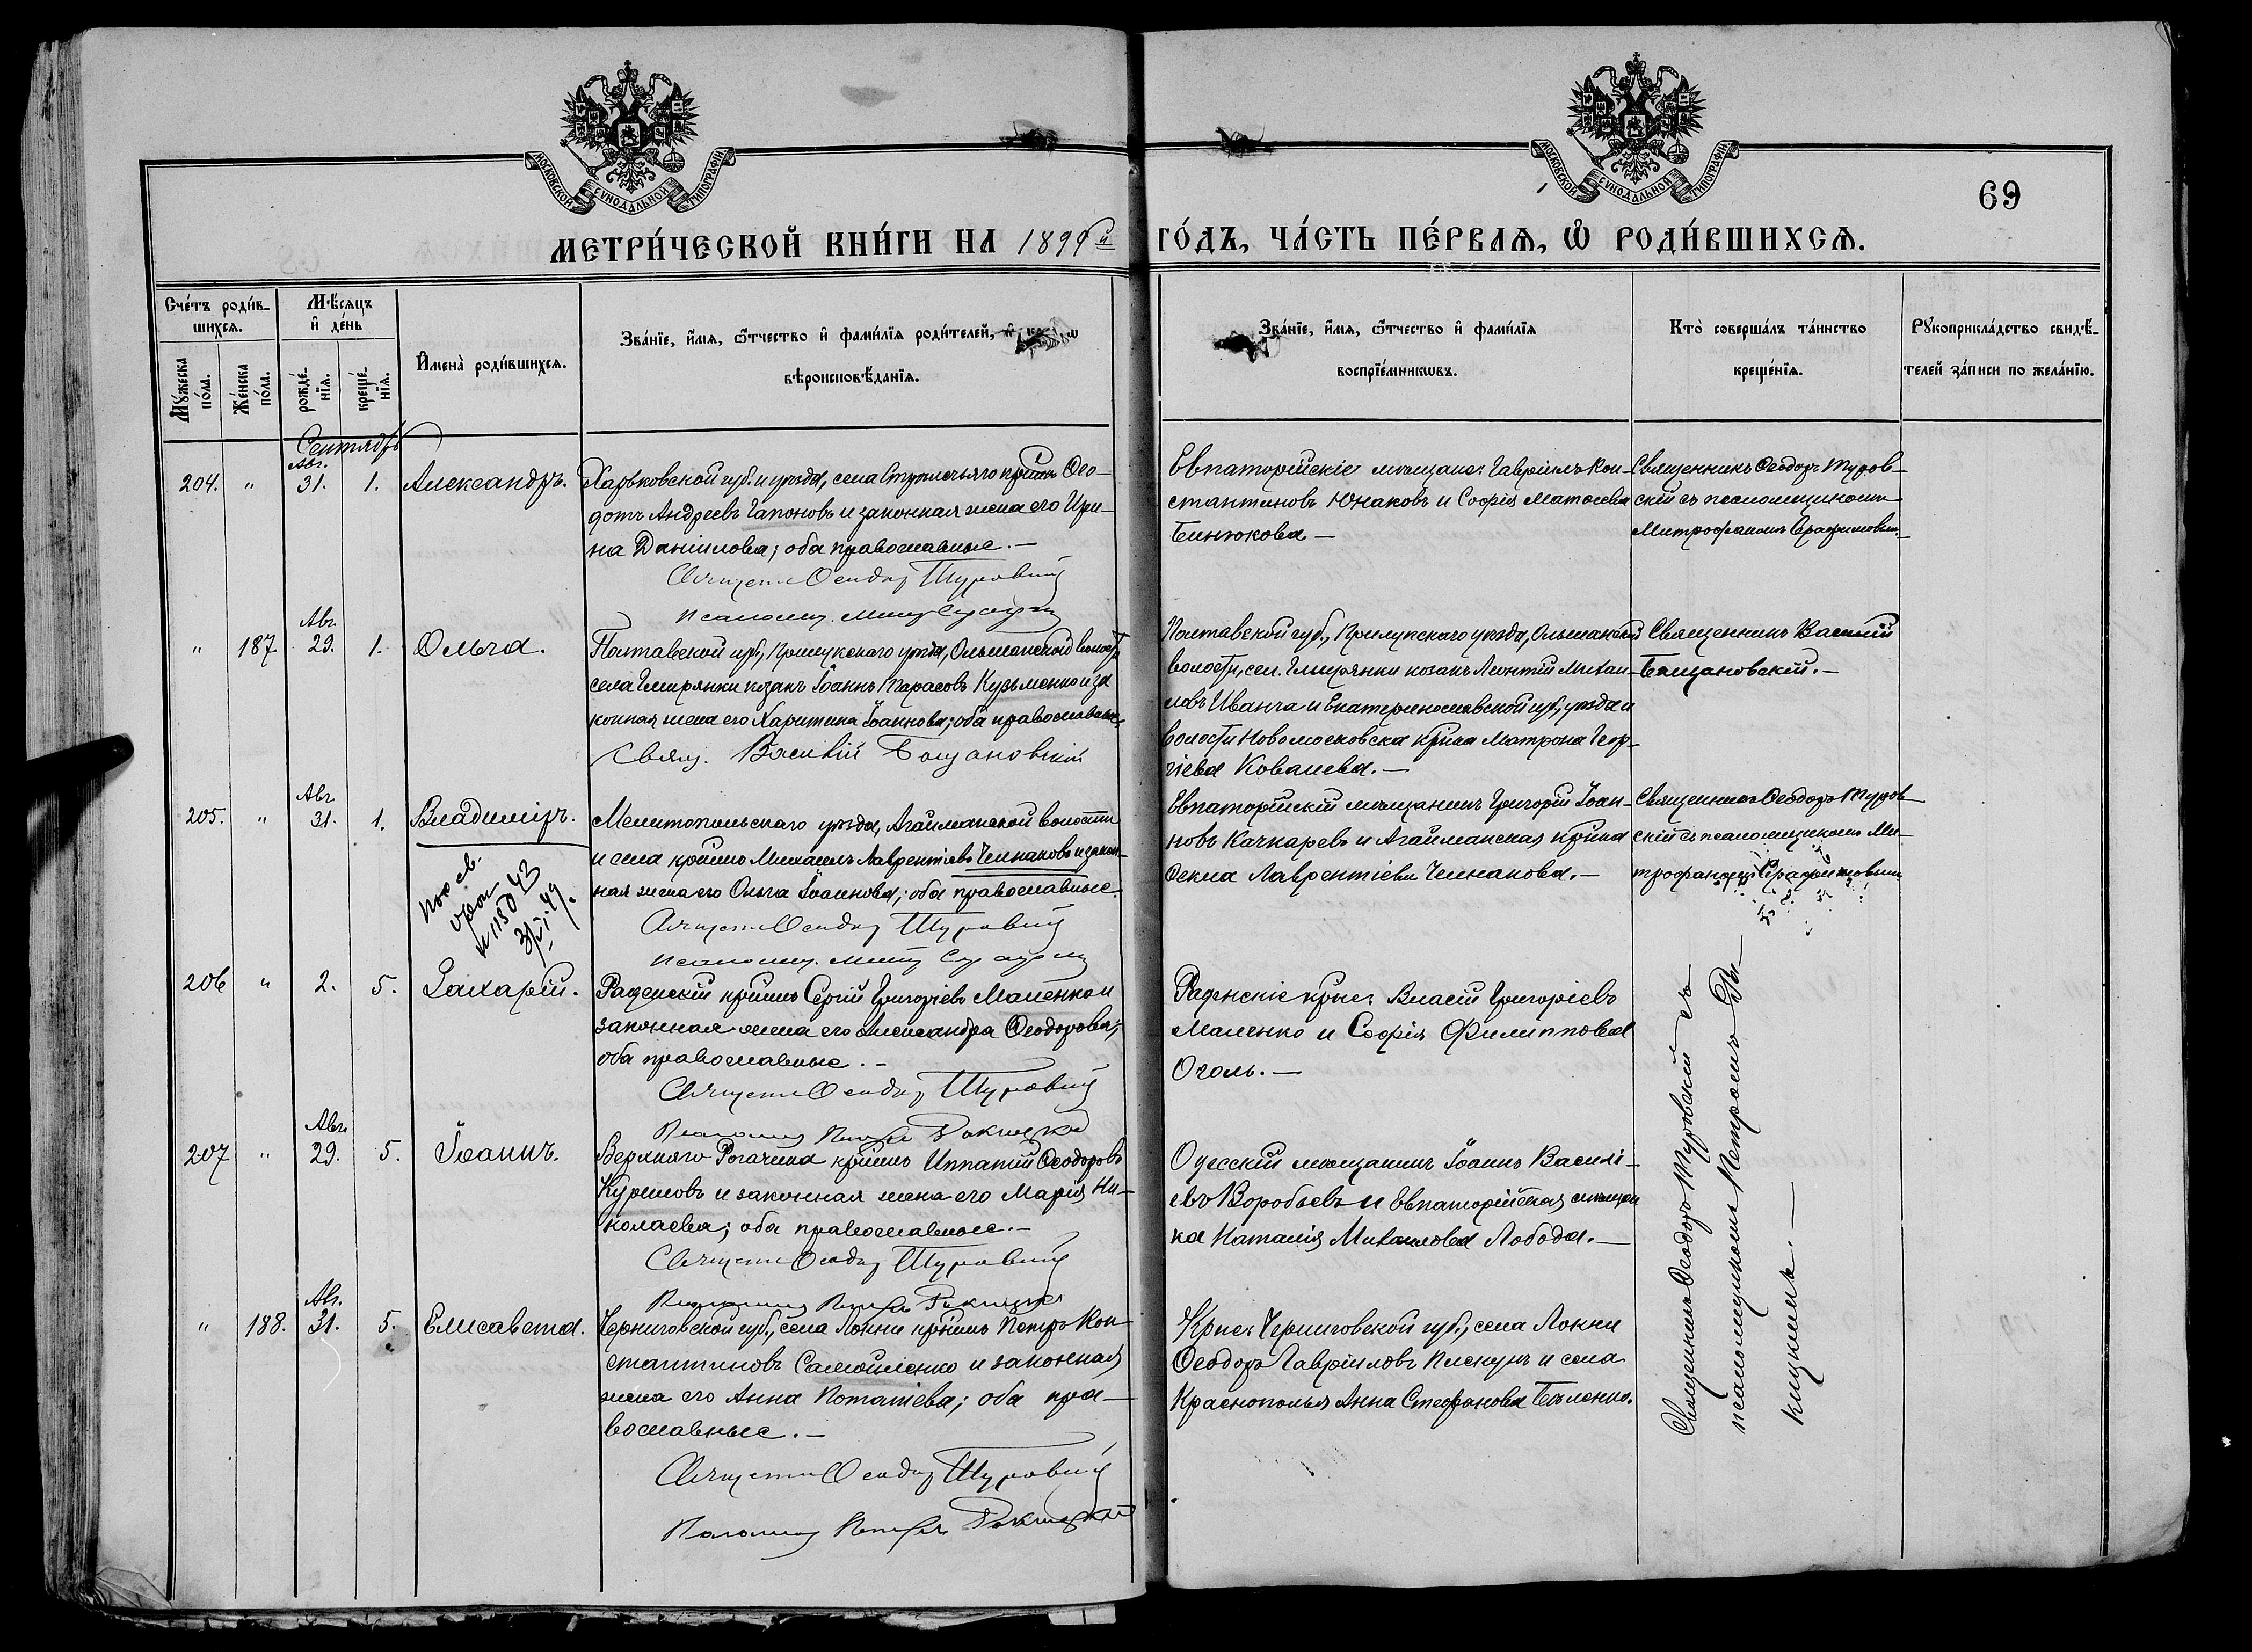 МОСКОВСКОЙ СѴНОДАЛЬНОЙ ТИПОГРАФІИ
МОСКОВСКОЙ СѴНОДАЛЬНОЙ ТИПОГРАФІИ
69
МЕТРИ́ЧЕСКОЙ КНИ́ГИ НА 1899й
ГО́ДЪ, ЧА́СТЬ ПЕ́РВАѦ, Ѽ РОДИ́ВШИХСѦ.
Сче́тъ роди́в-
шихсѧ.
Мꙋ́жеска
по́ла.
Же́нска
по́ла.
Мѣ́сѧцъ
и҆ де́нь
рожде́-
нїѧ.
креще́-
нїѧ.
И҆мена̀ роди́вшихсѧ.
Зва́нїе, и҆́мѧ, ѻ҆́тчество и҆ фами́лїѧ роди́телей, и҆
вѣроисповѣ́данїѧ.
Зва́нїе, и҆́мѧ, ѻ҆́тчество и҆ фами́лїѧ
воспрїе́мникѡвъ.
Кто̀ соверша́лъ та́инство
креще́нїѧ.
Рꙋкоприкла́дство свидѣ́-
телей за́писи по жела́нїю.
Сентябрь
204.
"
Авг.
31.
1.
Александръ.
Харьковской губ. и уѣзда, села крест. Ѳео-
дотъ Андреевъ Гапоновъ и законная жена его Ири-
на Даніилова; оба православные.—
Священ. Ѳеодоръ Туровскій
Псаломщ. Митр. Серафим
Евпаторійскіе мѣщане: Гавріилъ Кон-
стантиновъ Юнаковъ и Софія Матѳеева
Бинюкова —
Священникъ Ѳеодоръ Туров-
скій съ псаломщикомъ
Митрофаномъ Серафимовым.—
"
187.
Авг.
29.
1.
Ольга.
Полтавской губ., Прилукскаго уѣзда, Ольшанской волости
села Гмирянки козакъ Іоаннъ Тарасовъ Кузьменко и за
конная жена его Харитина Іоаннова; оба православные.
Свящ. Василій Бощановскій
Полтавской губ., Прилукскаго уѣзда, Ольшанской
волости, сел. Гмирянки козакъ Леонтій Михаи-
ловъ Иванча и Екатеринославской губ., уѣзда и
волости Новомосковска кр-нка Матрона Геор-
гіева Ковалева.—
Священникъ Василій
Бощановскій.—
205.
"
Авг.
31.
1.
Владиміръ.
43
49.
Мелитопольскаго уѣзда, Агайманской волости
и села кр-нинъ Михаилъ Лаврентіевъ Челнаковъ и закон-
ная жена его Ольга Іоаннова; оба православные.
Священ. Ѳеодоръ Туровскій
Псаломщ. Митр. Серафим
Евпаторійскій мѣщанинъ Григорій Іоан-
новъ Качкаревъ и Агайманская кр-нка
Ѳекла Лаврентіева Челнакова.—
Священникъ Ѳеодоръ Туров-
скій съ псаломщикомъ Ми-
трофаномъ Серафимовым
206
"
2.
5.
Захарій.
Раденскій кр-нинъ Сергій Григоріевъ Маленко и
законная жена его Александра Ѳеодорова;
оба православные.—
Священ. Ѳеодоръ Туровскій
Псаломщ. Петръ Ракицкій
Раденскіе кр-не: Власій Григоріевъ
Маленко и Софія Филиппова
Оголь.—
Священникъ Ѳеодоръ Туровскій съ
псаломщикомъ Петромъ Ра-
кицкимъ.—
207
"
Авг.
29.
5.
Іоаннъ.
Верхняго Рогачика кр-нинъ Ипатій Ѳеодоровъ
Куриловъ и законная жена его Марія Ни-
колаева; оба православные.—
Священ. Ѳеодоръ Туровскій
Псаломщ. Петръ Ракицкій
Одесскій мѣщанинъ Іоаннъ Василі-
евъ Воробьевъ и Евпаторійская мѣщан
ка Наталія Михайлова Лобода.—
"
188.
Авг.
31.
5.
Елисавета.
Черниговской губ., села Локни кр-нинъ Петръ Кон-
стантиновъ Самойленко и законная
жена его Анна Потапіева; оба пра-
вославные.—
Священ. Ѳеодоръ Туровскій
Псаломщ. Петръ Ракицкій
Кр-не: Черниговской губ., села Локни
Ѳеодоръ Гавріиловъ Пискунъ и села
Краснополья Анна Стефанова Бѣленко.